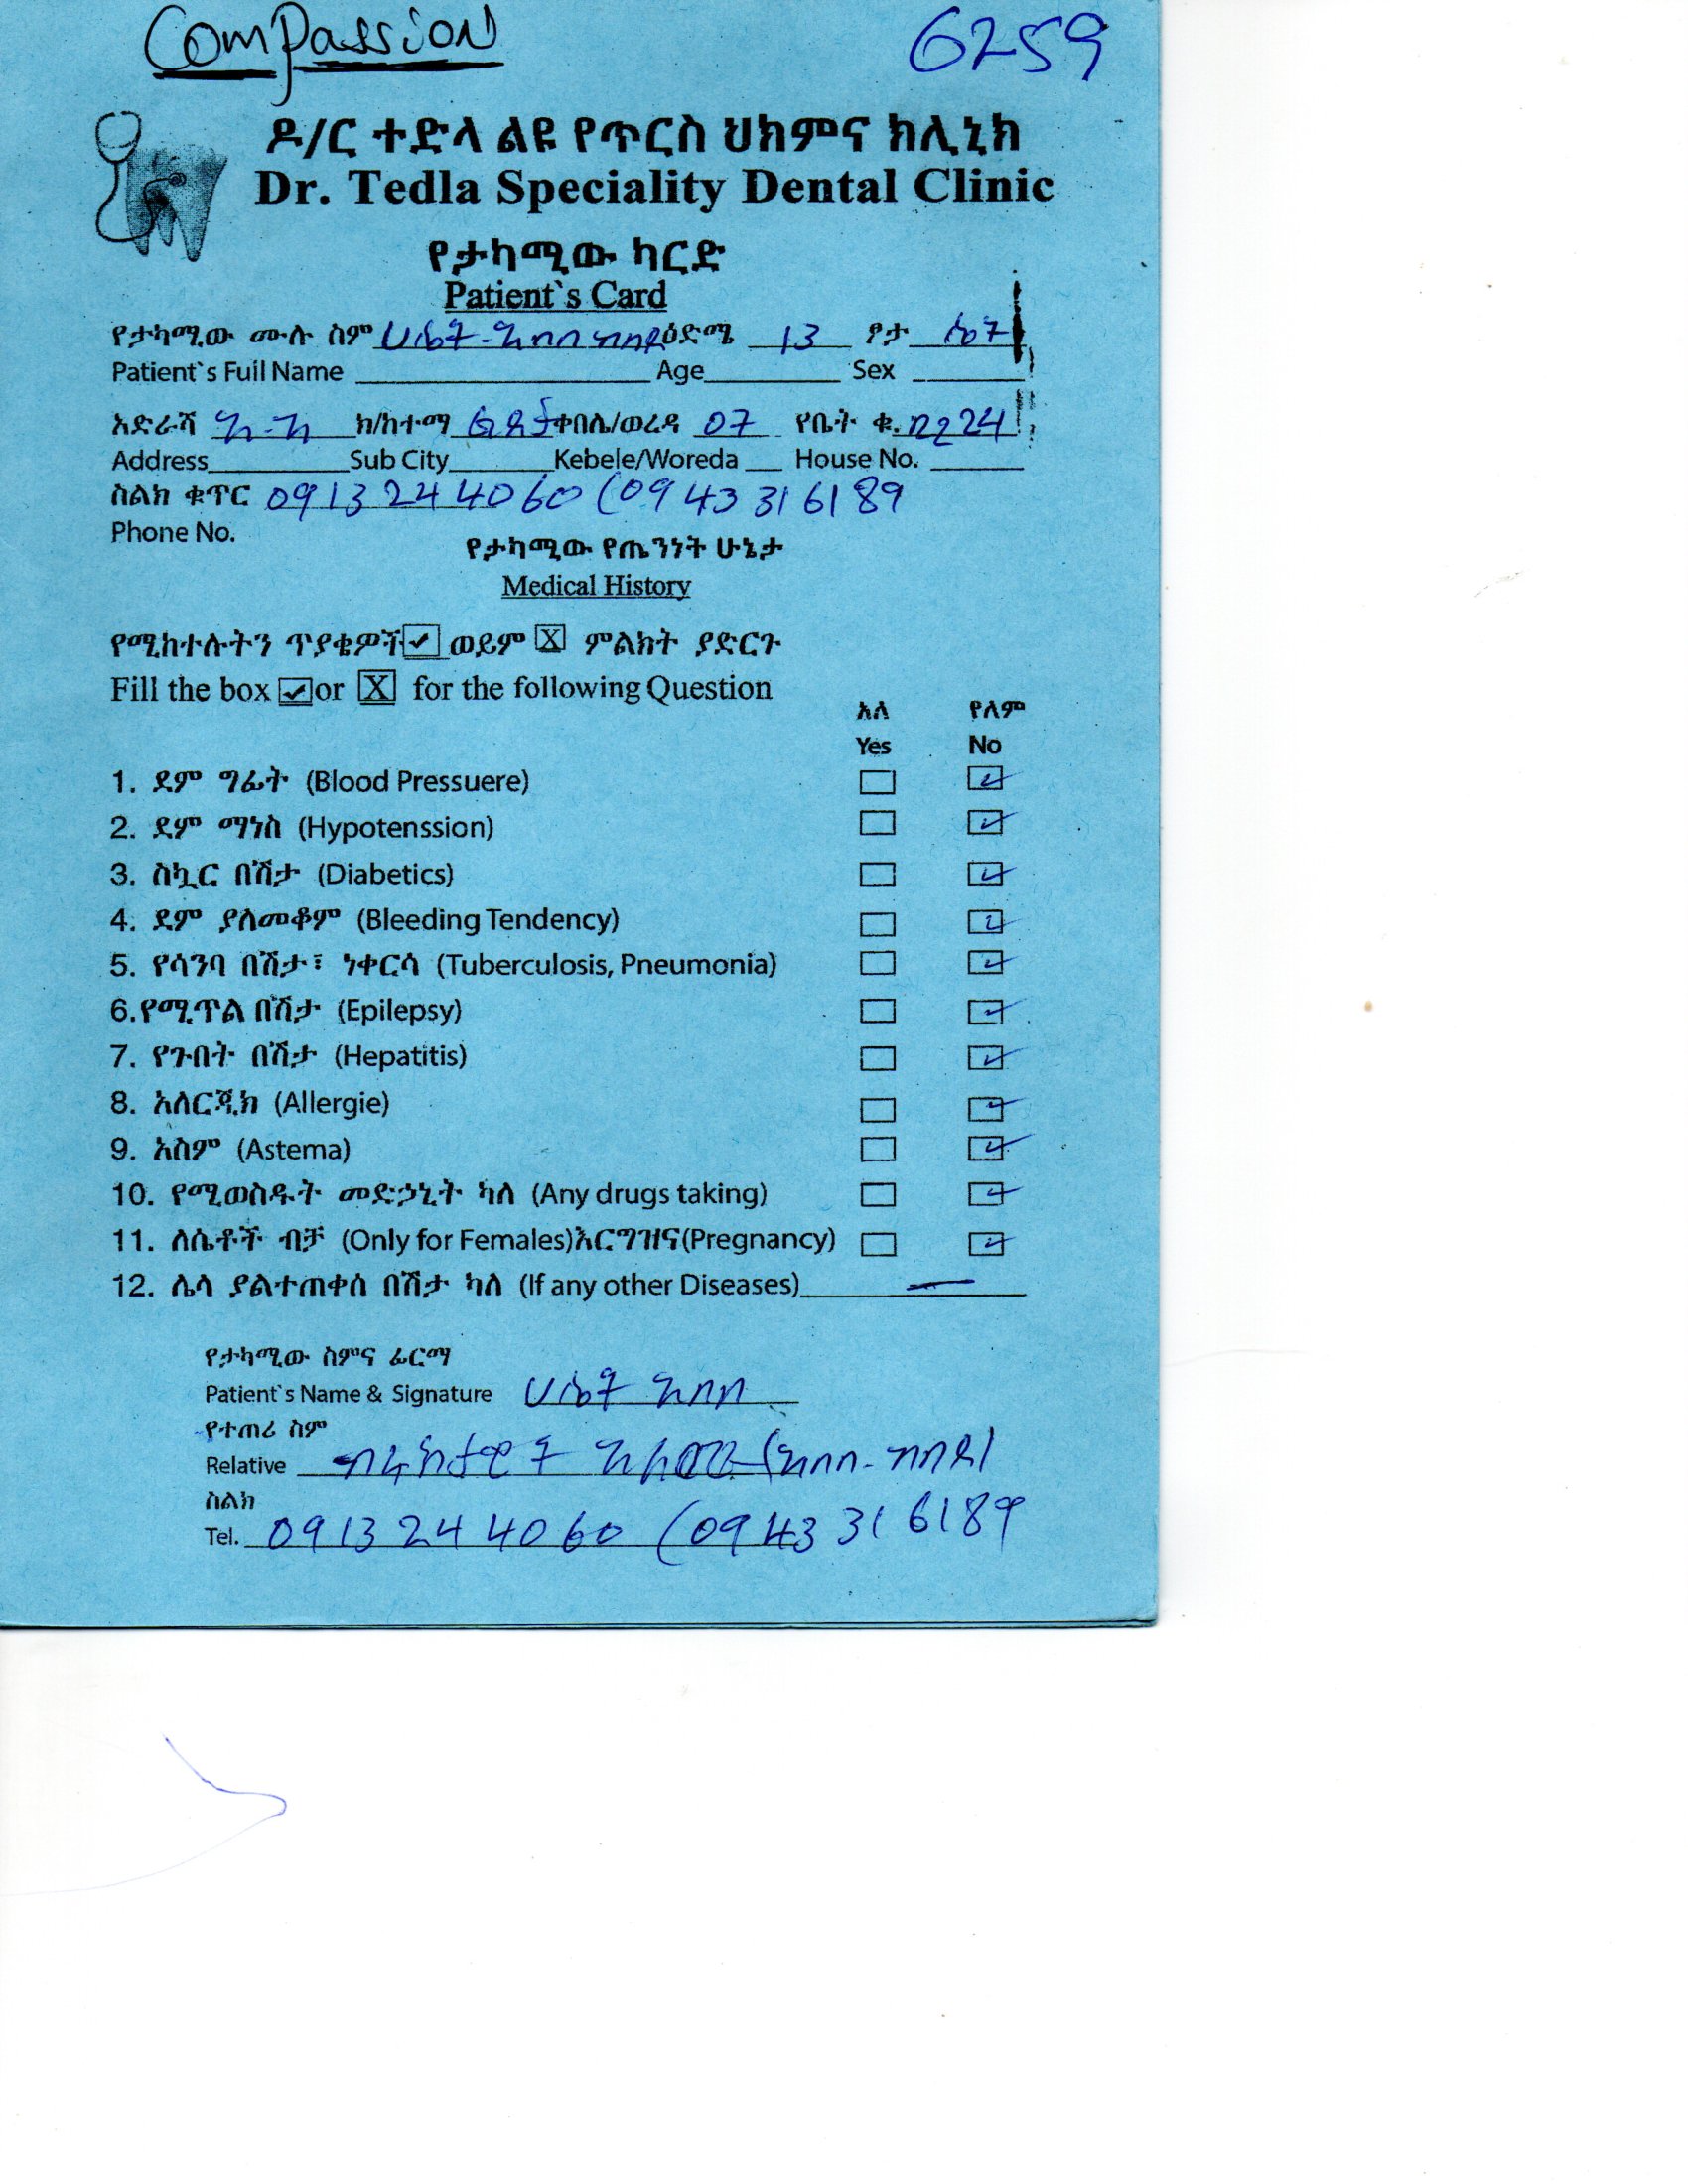 Compassion 6259
ዶ/ር ተድላ ልዩ የጥርስ ህክምና ክሊኒክ
Dr. Tedla Speciality Dental Clinic
የታካሚው ካርድ
Patient`s Card
የታካሚው ሙሉ ስም ዕድሜ 13 ፆታ ሴት
Patient`s Full Name Age Sex
አድራሻ አ-አ ክ/ከተማ ቀበሌ/ወረዳ 07 የቤት ቁ.
Address Sub City Kebele/Woreda House No.
ስልክ ቁጥር 0913 24 40 60 (09 43 31 61 89
Phone No.
የታካሚው የጤንነት ሁኔታ
Medical History
የሚከተሉትን ጥያቄዎች ወይም X ምልክት ያድርጉ
Fill the box or X for the following Question
አለ የለም
Yes No
1. ደም ግፊት (Blood Pressuere)
2. ደም ማነስ (Hypotenssion)
3. ስኳር በሽታ (Diabetics)
4. ደም ያለመቆም (Bleeding Tendency)
5. የሳንባ በሽታ፣ ነቀርሳ (Tuberculosis, Pneumonia)
6.የሚጥል በሽታ (Epilepsy)
7. የጉበት በሽታ (Hepatitis)
8. አለርጂክ (Allergie)
9. አስም (Astema)
10. የሚወስዱት መድኃኒት ካለ (Any drugs taking)
11. ለሴቶች ብቻ (Only for Females)እርግዝና(Pregnancy)
12. ሌላ ያልተጠቀሰ በሽታ ካለ (If any other Diseases)
የታካሚው ስምና ፊርማ
Patient`s Name & Signature
የተጠሪ ስም
Relative
ስልክ
Tel. 0913 24 40 60 (09 43 31 61 89